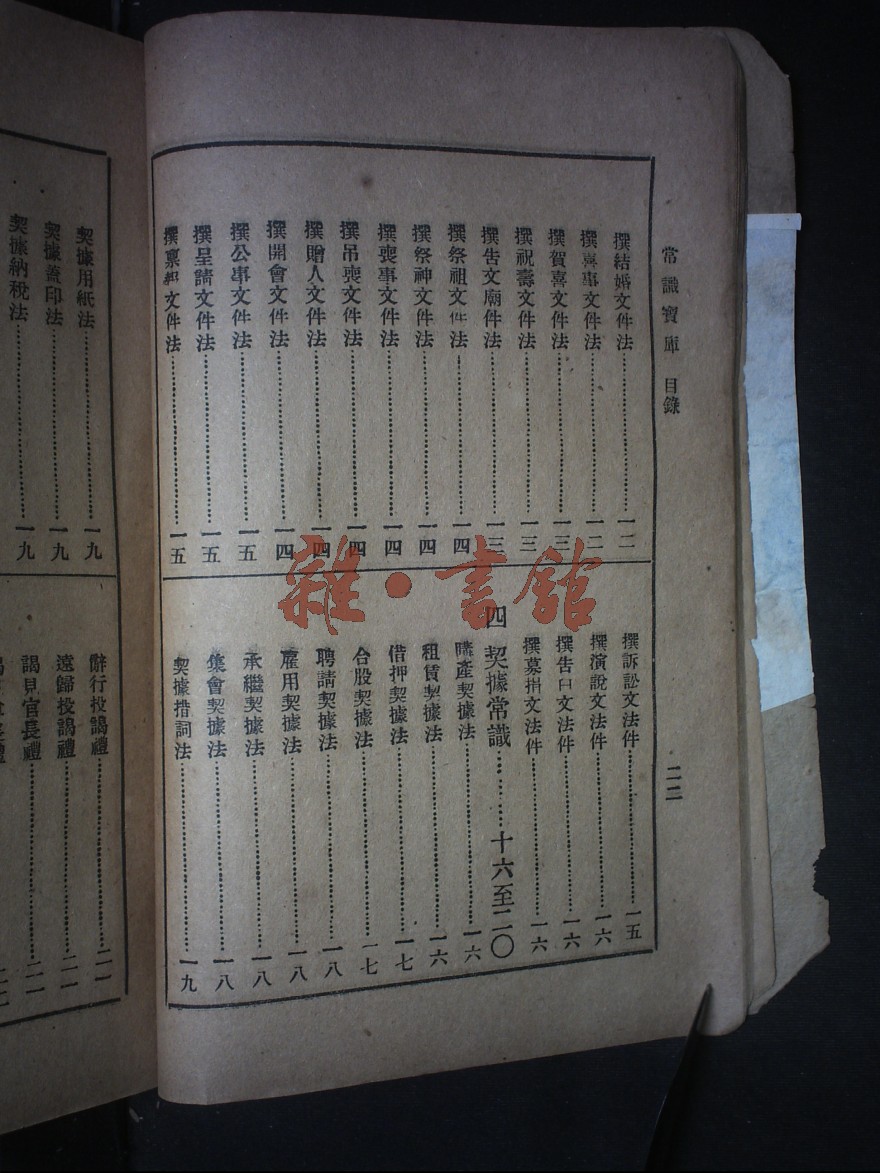 常識寶庫 目錄
二二
撰結婚文件法…………一二
撰喜事文件法…………一二
撰賀喜文件法…………一三
撰祝壽文件法…………一三
撰告文廟件法…………一三
撰祭祖文件法…………一四
撰祭神文件法…………一四
撰喪事文件法…………一四
撰吊喪文件法…………一四
撰贈人文件法…………一四
撰開會文件法…………一四
撰公事文件法…………一五
撰呈請文件法…………一五
撰稟 文件法…………一五
撰訴訟文法件…………一五
撰演說文法件…………一六
撰告 文法件…………一六
撰募捐文法件…………一六
四 契據常識…………十六至二〇
產契據法…………一六
租賃契據法…………一六
借押契據法…………一七
合股契據法…………一七
聘請契據法…………一八
雇用契據法…………一八
承繼契據法…………一八
集會契據法…………一八
契據措詞法…………一九
契據用紙法…………一九
契據蓋印法…………一九
契據納稅法…………一九
辭行投謁禮…………二一
遠歸投謁禮…………二一
謁見官長禮…………二一
雜·書館